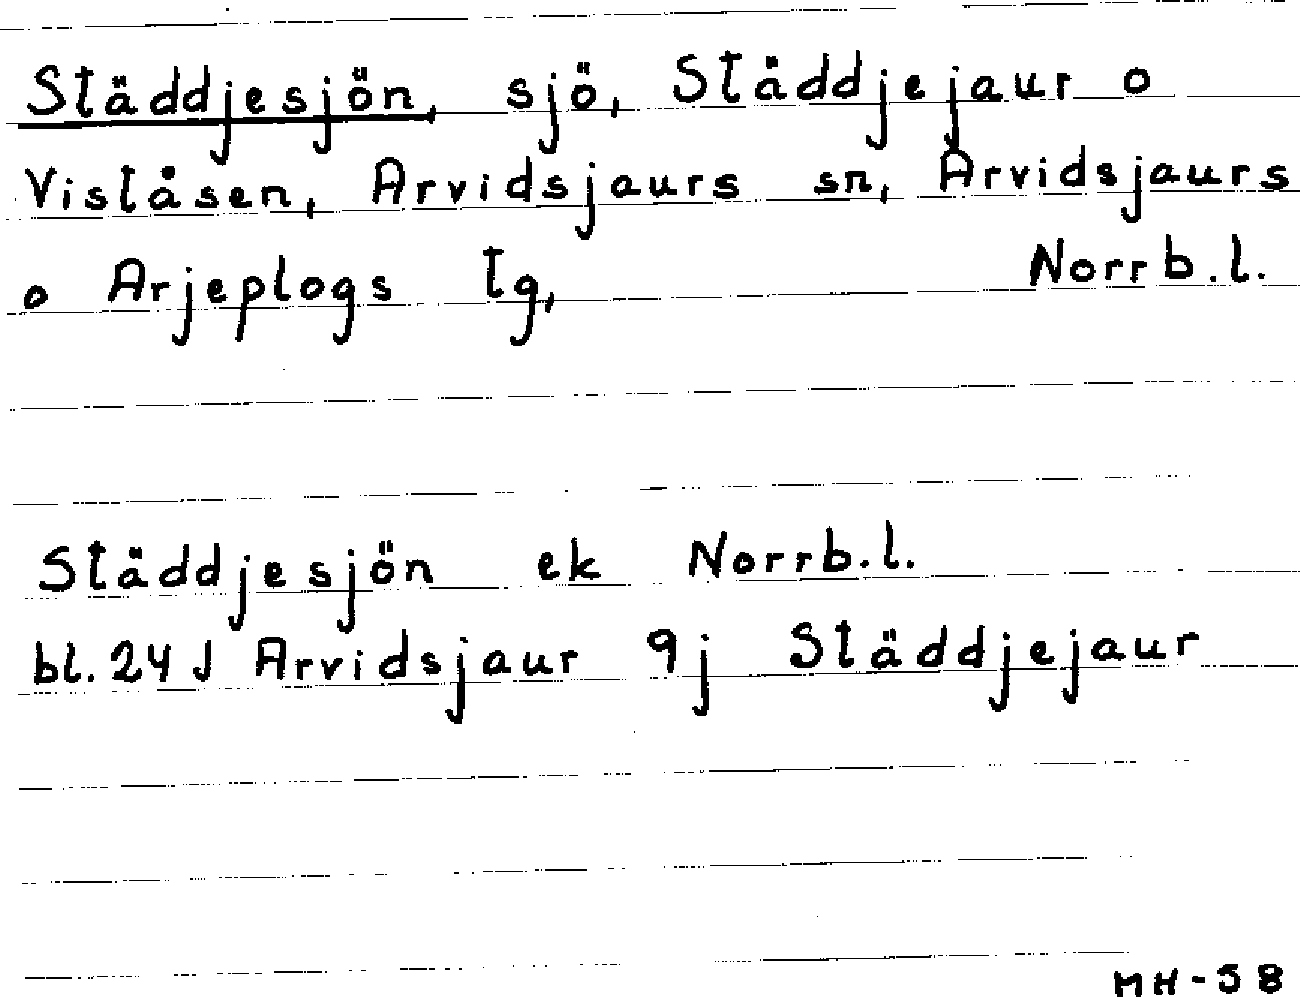 Städdjesjön, sjö, Städdjejaur o
Viståsen, Arvidsjaurs sn, Arvidsjaurs
o Arjeplogs tg, Norrb.l.
Städdjesjön ek Norrb.l.
bl. 24 J Arvidsjaur 9j Städdjejaur
MH-58